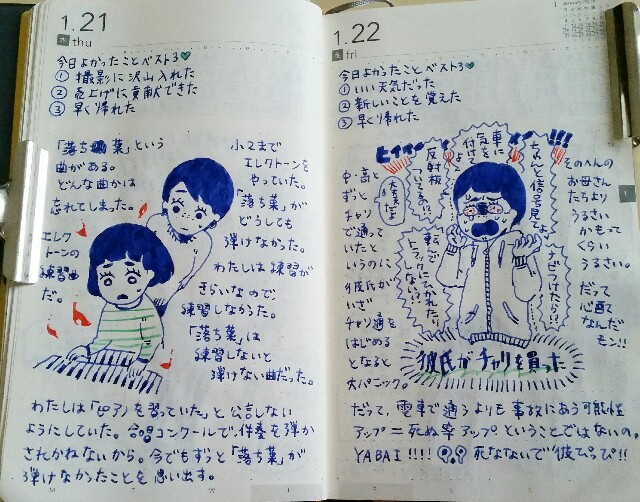 1.21
thu
今日よかったことベスト3
① 撮影に沢山入れた
② 売上げに貢献できた
③ 早く帰れた
「落ち葉」という
曲がある。
どんな曲かは
忘れてしまった。
エレク
トーンの
練習中
だ。
小2まで
エレクトーンを
やっていた。
「落ち葉」が
どうしても
弾けなかった。
わたしは練習が
きらいなので、
練習しなかった。
「落ち葉」は
練習しないと
弾けない曲だった。
わたしは「ピアノを習っていた」と公言しない
ようにしていた。合唱コンクールで、伴奏を弾か
されかねないから。今でもずっと「落ち葉」が
弾けなかったことを思い出す。
1.22
fri
今日よかったことベスト3
① いい天気だった
② 新しいことを覚えた
③ 早く帰れた
ヒィィー
ー!!!
車に
気を
付けて
よ
反射板
ちゃんと信号見てよ
大丈夫だよ
転んで
トラックにひかれたら!?
ナビつけたら!?
中・高と
ずっと
チャリ
で通って
いたと
いうのに
彼氏が
いざ
チャリ通を
はじめる
となると
大パニック。
そのへんの
お母さん
たちより
うるさい
かもって
くらい
うるさい。
だって
心配
なんだ
モン!!
彼氏がチャリを買った
だって、電車で通うよりも事故にあう可能性
アップ=死ぬ率アップということではないの。
YABAI!!!! 死なないで彼ぴっぴ!!